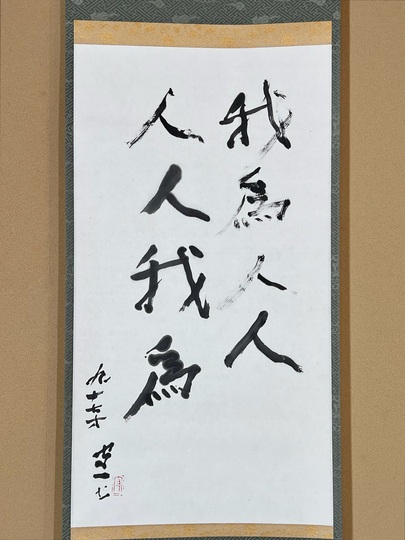 我為人人
人人我為
九十七才